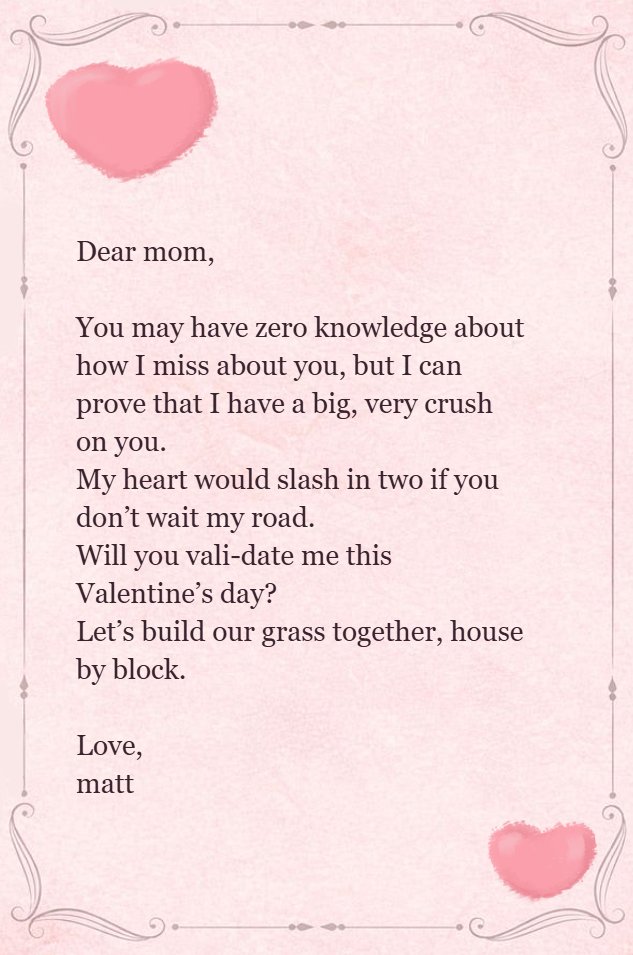 Dear mom,
You may have zero knowledge about
how I miss about you, but I can
prove that I have a big, very crush
on you.
My heart would slash in two if you
don’t wait my road.
Will you vali-date me this
Valentine’s day?
Let’s build our grass together, house
by block.
Love,
matt